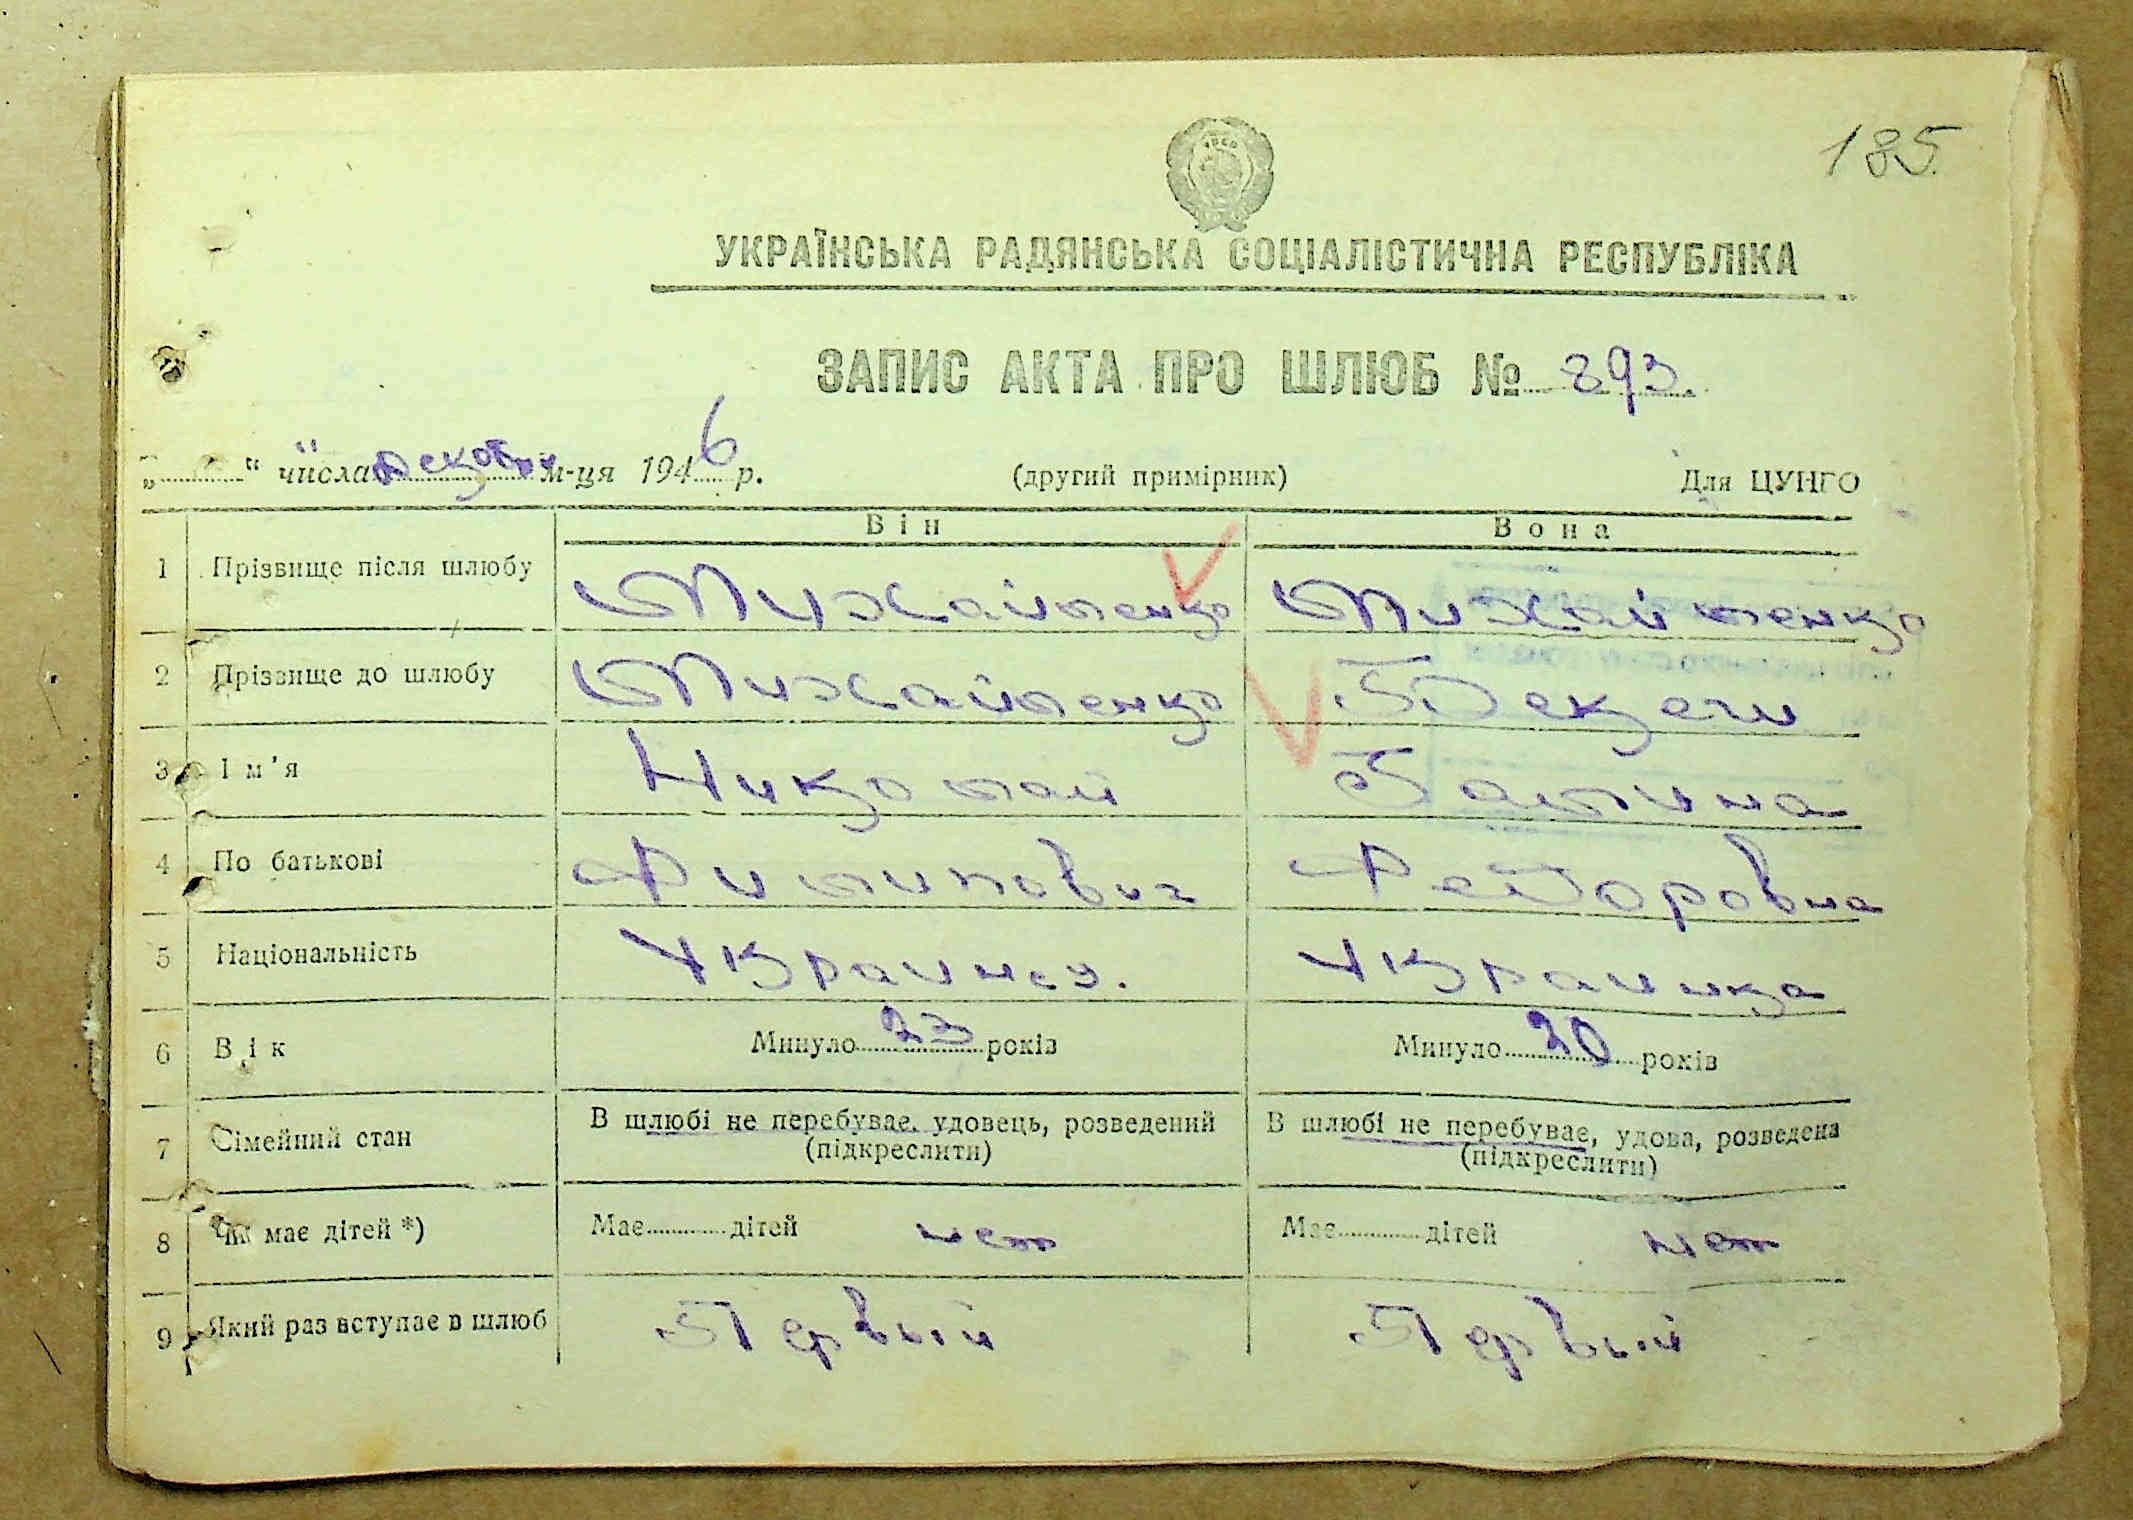 185
УКРАЇНСЬКА РАДЯНСЬКА СОЦІАЛІСТИЧНА РЕСПУБЛІКА
ЗАПИС АКТА ПРО ШЛЮБ № 893.
„ “ числа декабря м-ця 1946 р. (другий примірник) Для ЦУНГО
Він Вона
1 Прізвище після шлюбу Михайленко Михайленко
2 Прізвище до шлюбу Михайленко
3 Ім'я Николай Галина
4 По батькові Филипович Федоровна
5 Національність Украинец. Украинка
6 Вік Минуло 23 років Минуло 20 років
7 Сімейний стан В шлюбі не перебуває, удовець, розведений (підкреслити) В шлюбі не перебуває, удова, розведена (підкреслити)
8 Чи має дітей *) Має дітей нет Має дітей нет
9 Який раз вступає в шлюб Первый Первый